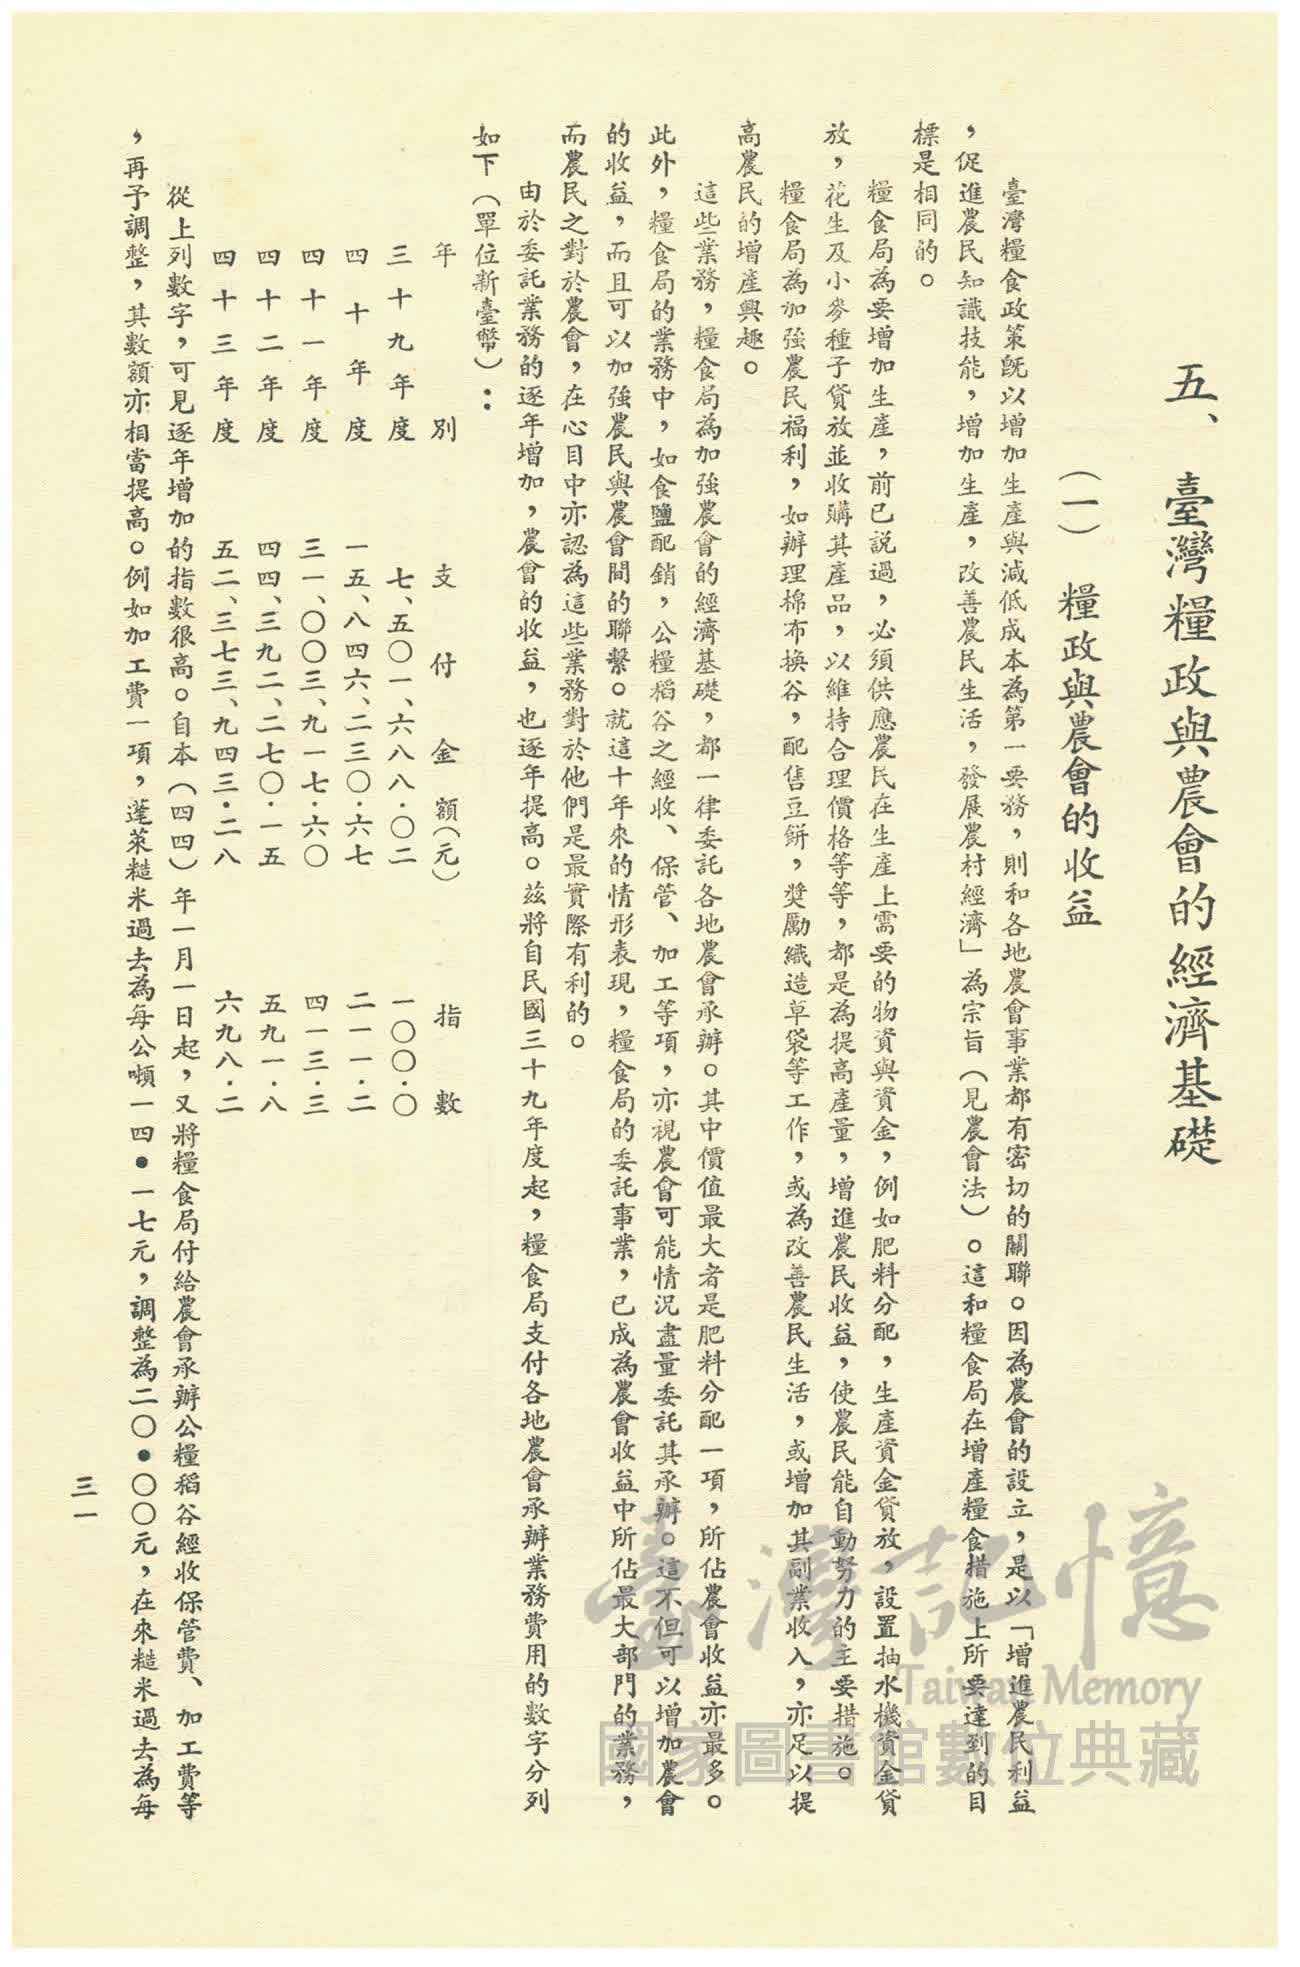 五、 臺灣糧政與農會的經濟基礎
（一） 糧政與農會的收益
臺灣糧食政策旣以增加生產與減低成本為第一要務，則和各地農會事業都有密切的關聯。因為農會的設立，是以「增進農民利益
，促進農民知識技能，增加生產，改善農民生活，發展農村經濟」為宗旨（見農會法）。這和糧食局在增產糧食措施上所要達到的目
標是相同的。
糧食局為要增加生產，前已說過，必須供應農民在生產上需要的物資與資金，例如肥料分配，生產資金貸放，設置抽水機資金貸
放，花生及小麥種子貸放並收購其產品，以維持合理價格等等，都是為提高產量，增進農民收益，使農民能自動努力的主要措施。
糧食局為加強農民福利，如辦理棉布換谷，配售豆餅，獎勵織造草袋等工作，或為改善農民生活，或增加其副業收入，亦足以提
高農民的增產興趣。
這些業務，糧食局為加強農會的經濟基礎，都一律委託各地農會承辦。其中價值最大者是肥料分配一項，所佔農會收益亦最多。
此外，糧食局的業務中，如食鹽配銷，公糧稻谷之經收、保管、加工等項，亦視農會可能情況盡量委託其承辦。這不但可以增加農會
的收益，而且可以加強農民與農會間的聯繫。就這十年來的情形表現，糧食局的委託事業，已成為農會收益中所佔最大部門的業務，
而農民之對於農會，在心目中亦認為這些業務對於他們是最實際有利的。
由於委託業務的逐年增加，農會的收益，也逐年提高。茲將自民國三十九年度起，糧食局支付各地農會承辦業務費用的數字分列
如下（單位新臺幣）：
年別 支付金額（元） 指數
三十九年度 七、五〇一、六八八．〇二 一〇〇．〇
四十年度 一五、八四六、二三〇．六七 二一一．二
四十一年度 三一、〇〇三、九一七．六〇 四一三．三
四十二年度 四四、三九二、二七〇．一五 五九一．八
四十三年度 五二、三七三、九四三．二八 六九八．二
從上列數字，可見逐年增加的指數很高。自本（四四）年一月一日起，又將糧食局付給農會承辦公糧稻谷經收保管費、加工費等
，再予調整，其數額亦相當提高。例如加工費一項，蓬萊糙米過去為每公噸一四●一七元，調整為二〇●〇〇元，在來糙米過去為每
三一
臺灣記憶
Taiwan Memory
國家圖書館數位典藏